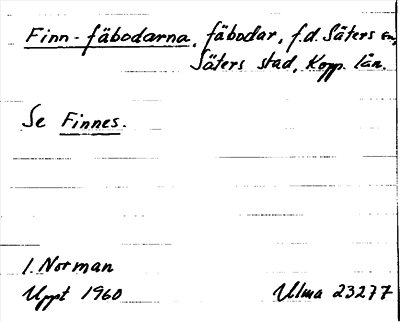 Finn-fäbodarna, fäbodar, f.d. Säters sn,
Säters stad, Kopp. län.
Se Finnes.
I. Norman
Uppt 1960 Ulma 23277